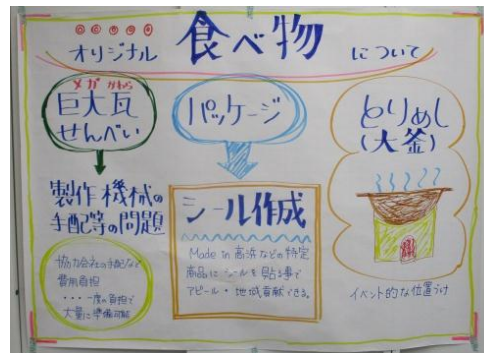 オリジナル 食べ物 について
メガ かわら
巨大瓦
せんべい
製作機械の
手配等の問題
協力会社の手配など
費用負担
・・・一度の負担で
大量に準備可能
パッケージ
シール作成
Made in 高浜などの特定
商品にシールを貼る事で
アピール・地域貢献できる。
とりめし
(大釜)
イベント的な位置づけ